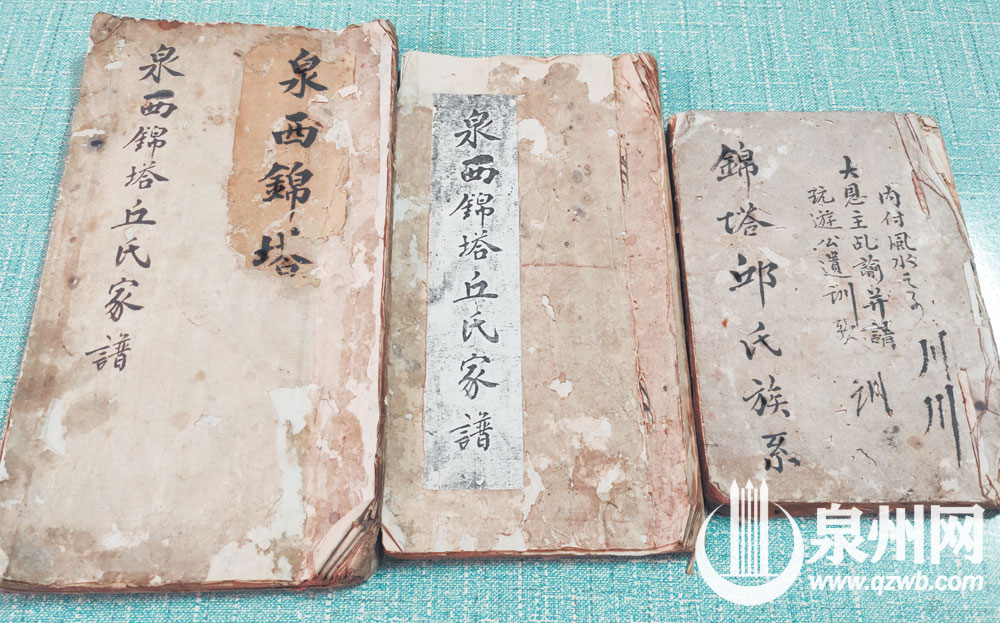 泉西錦塔
泉西錦塔丘氏家譜
泉西錦塔丘氏家譜
內付風水
大恩主乩諭并請訓
玩遊公遺訓
錦塔邱氏族系
川川
泉州网
www.qzwb.com